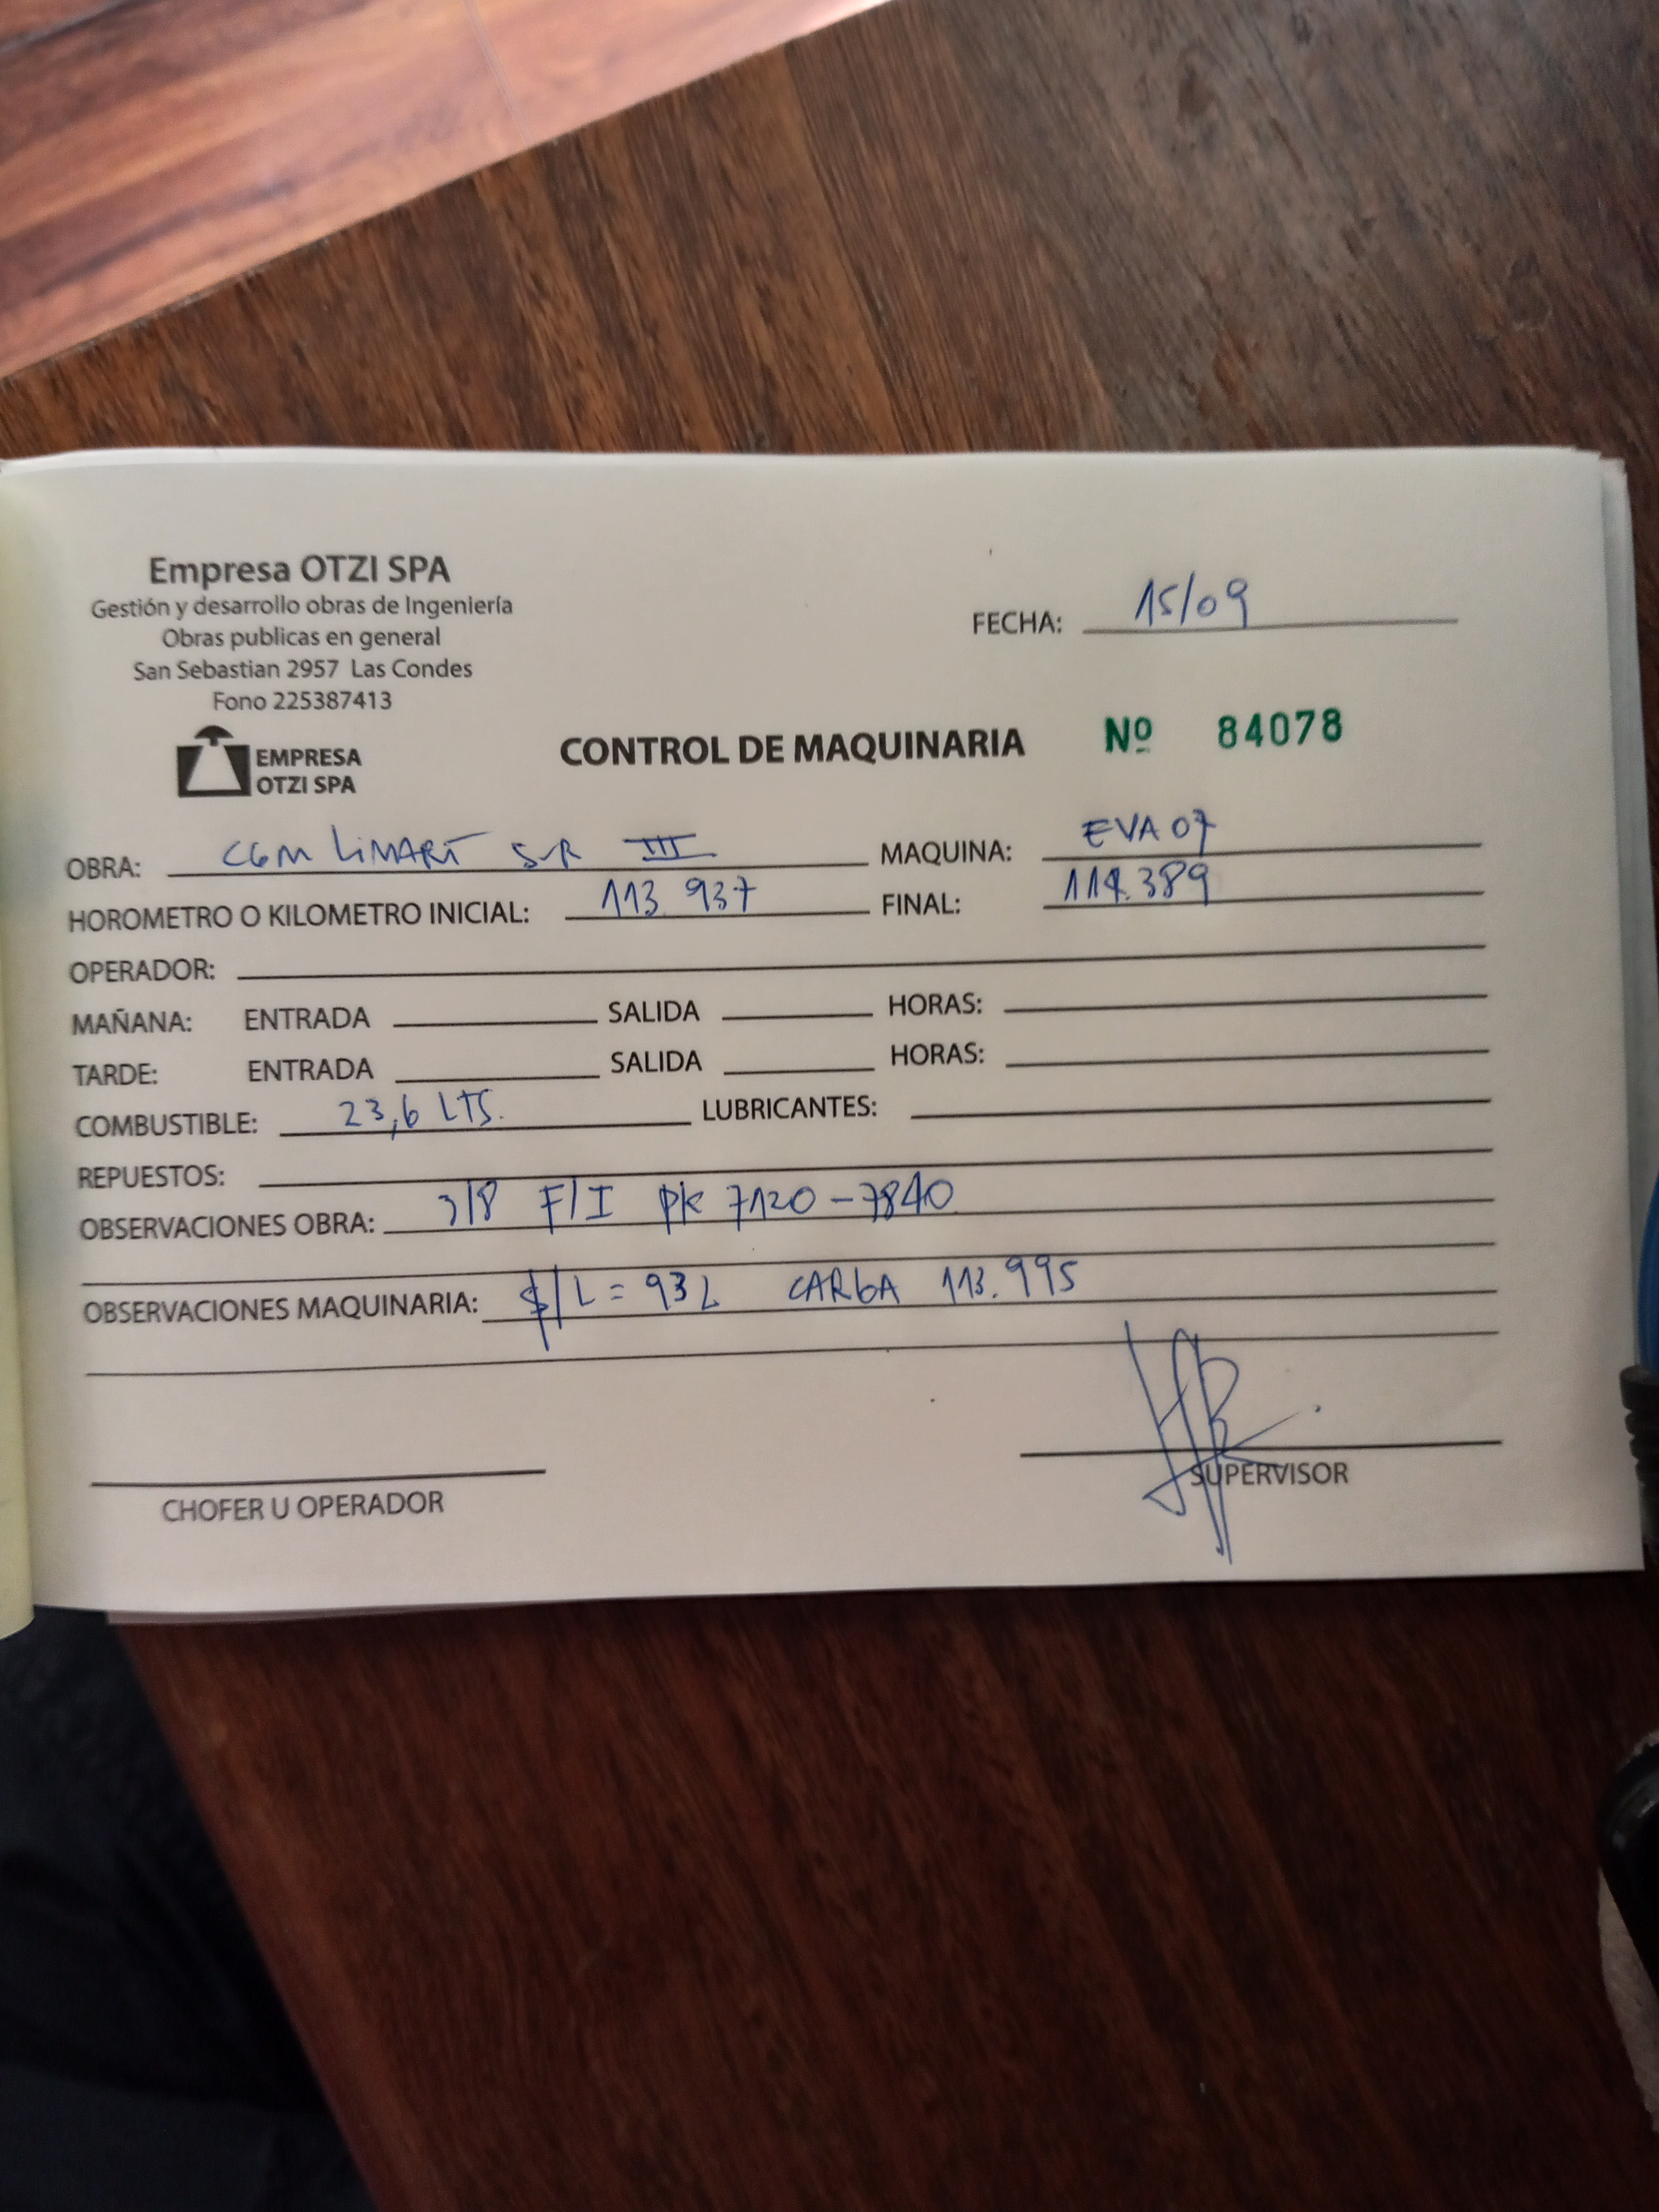 Empresa OTZI SPA
Gestión y desarrollo obras de Ingeniería
Obras publicas en general
San Sebastian 2957 Las Condes
Fono 225387413
EMPRESA
OTZI SPA
FECHA: 15/09
CONTROL DE MAQUINARIA Nº 84078
OBRA: CGM LiMARI III MAQUINA: EVA 07
HOROMETRO O KILOMETRO INICIAL: 113.937 FINAL: 114.389
OPERADOR:
MAÑANA: ENTRADA SALIDA HORAS:
TARDE: ENTRADA SALIDA HORAS:
COMBUSTIBLE: 23,6 LTS. LUBRICANTES:
REPUESTOS:
OBSERVACIONES OBRA: 3/8 F/I PK 7120-7840
OBSERVACIONES MAQUINARIA: $/L = CARGA 113.995
CHOFER U OPERADOR
SUPERVISOR